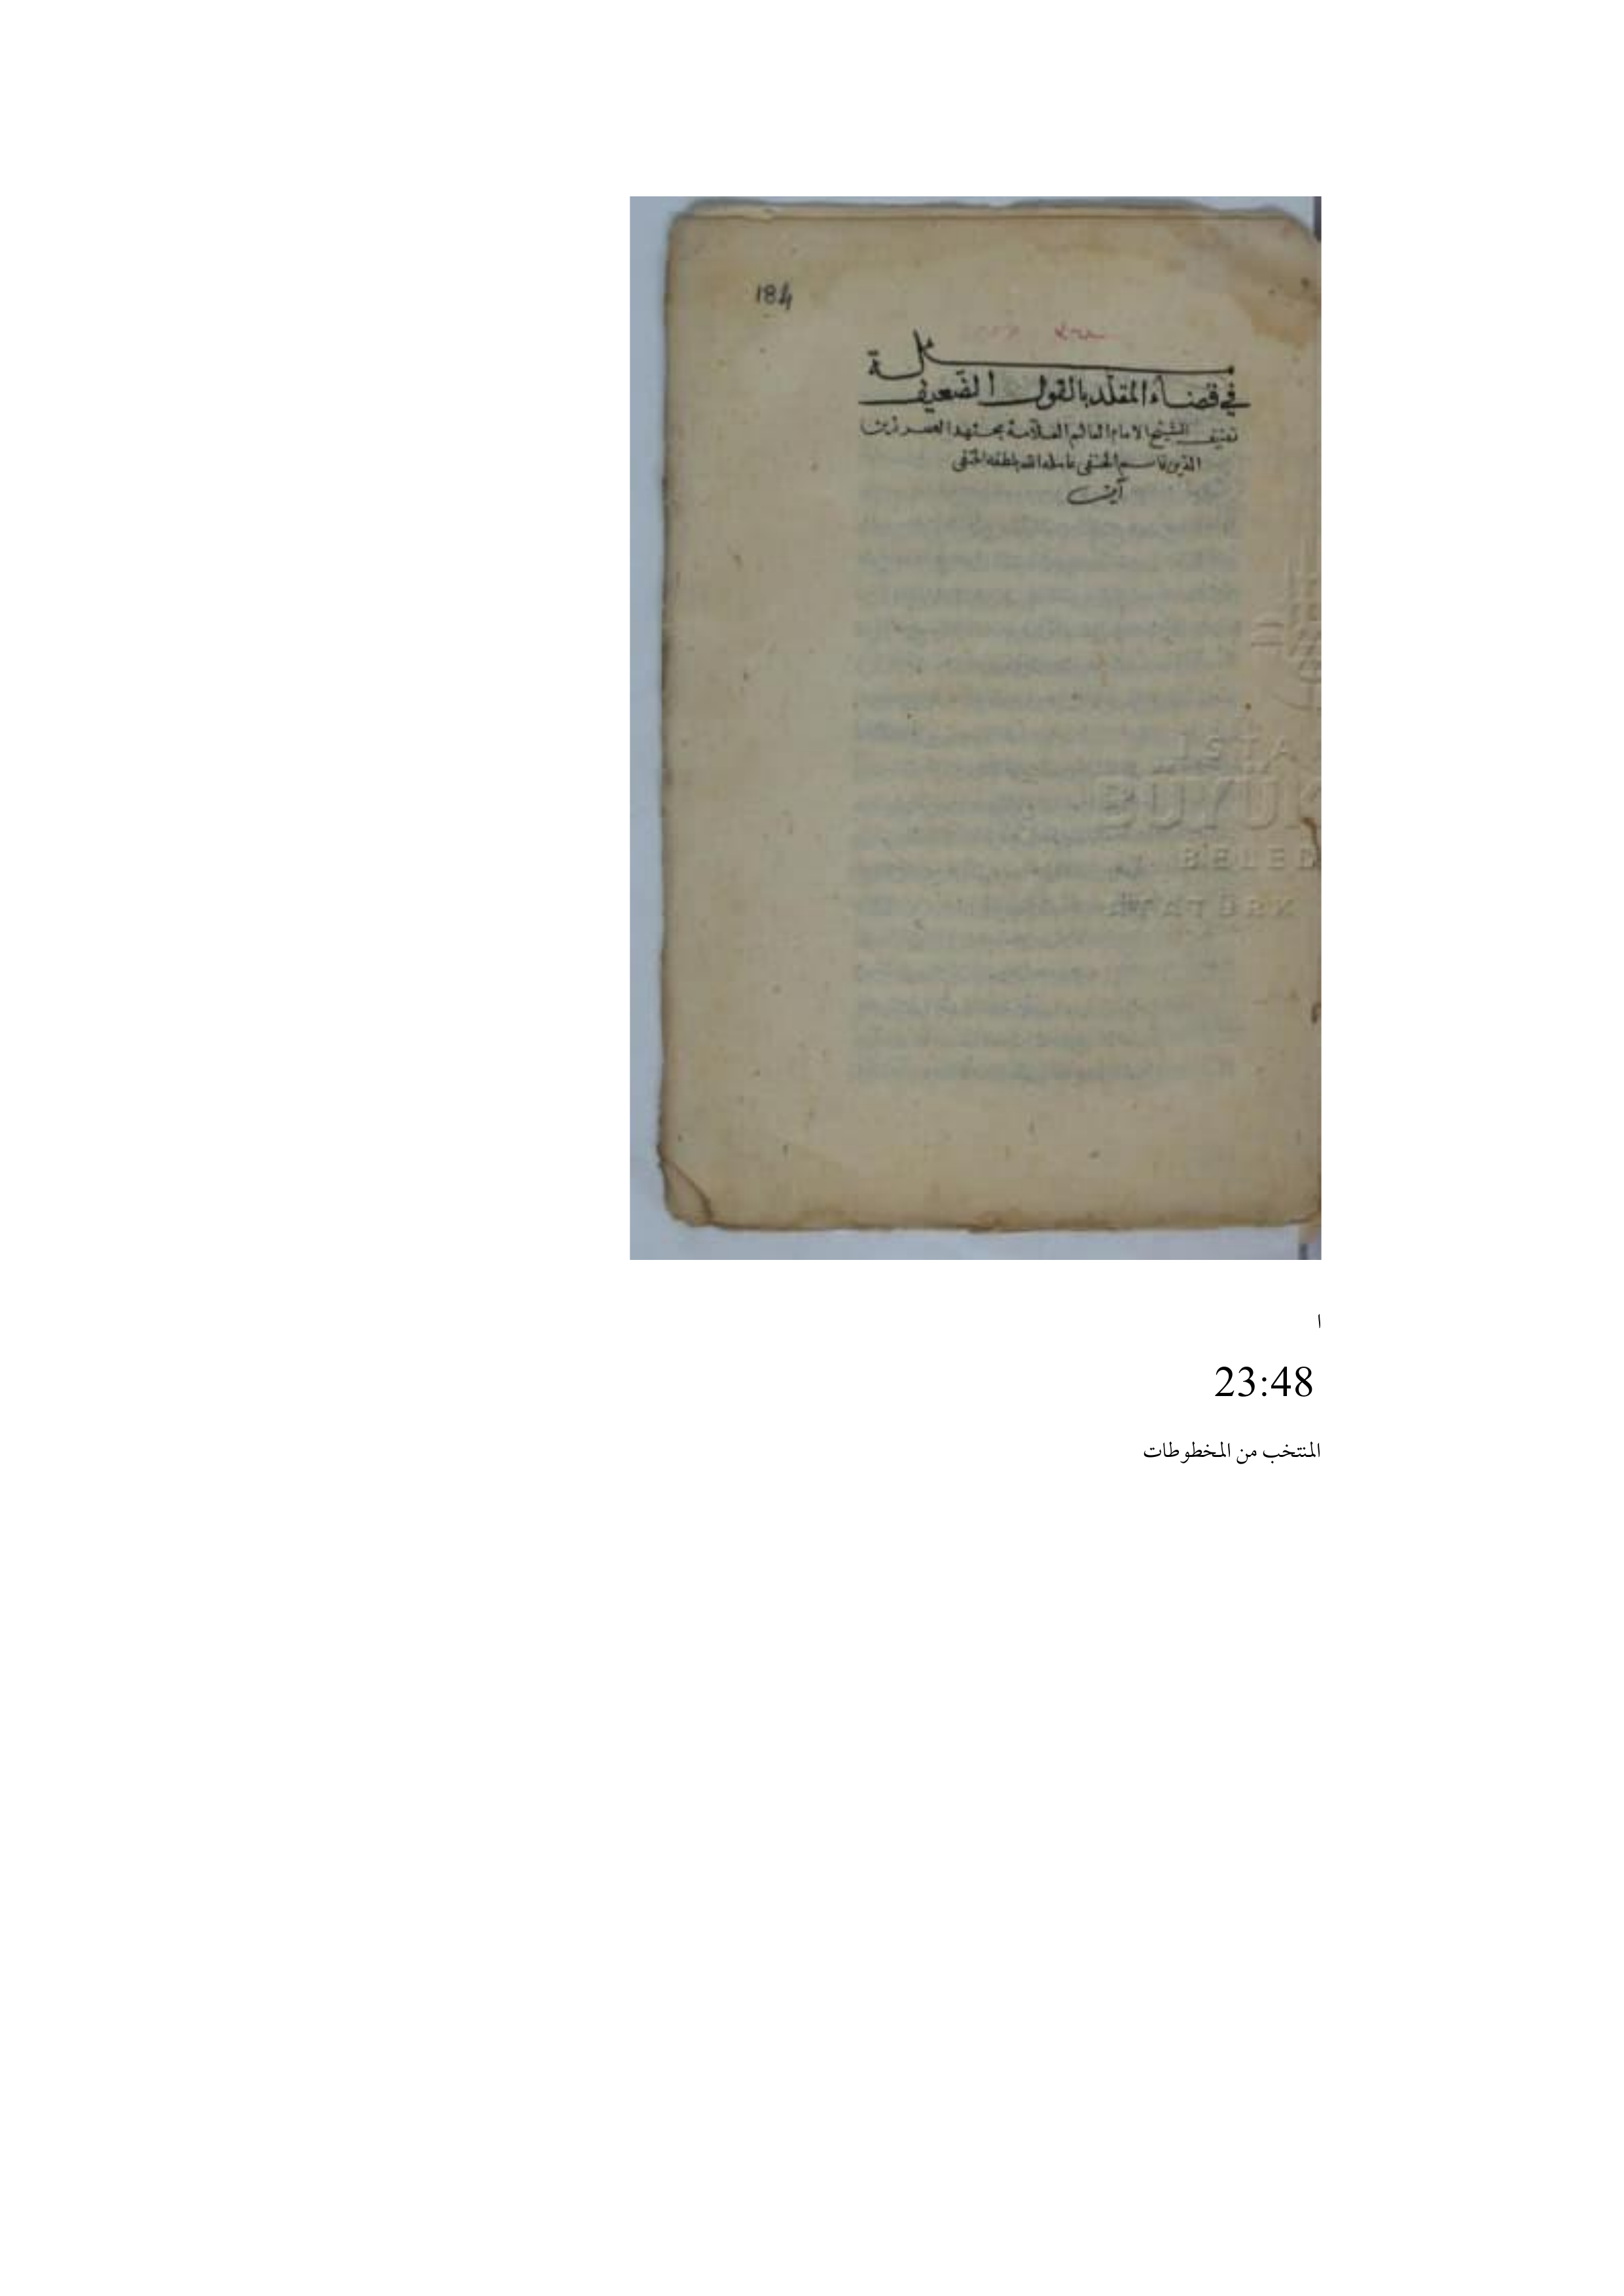 184
مسئلة
في قضاء المقلد بالقول الضعيف
تصنيف الشيخ الامام العالم العلامة مجتهد العصر زين
الدين قاسم الحنفي عامله الله بلطفه الخفي
آمين
ISTA
BÜYÜK
BELED
ATATÜRK
ا
23:48
المنتخب من المخطوطات